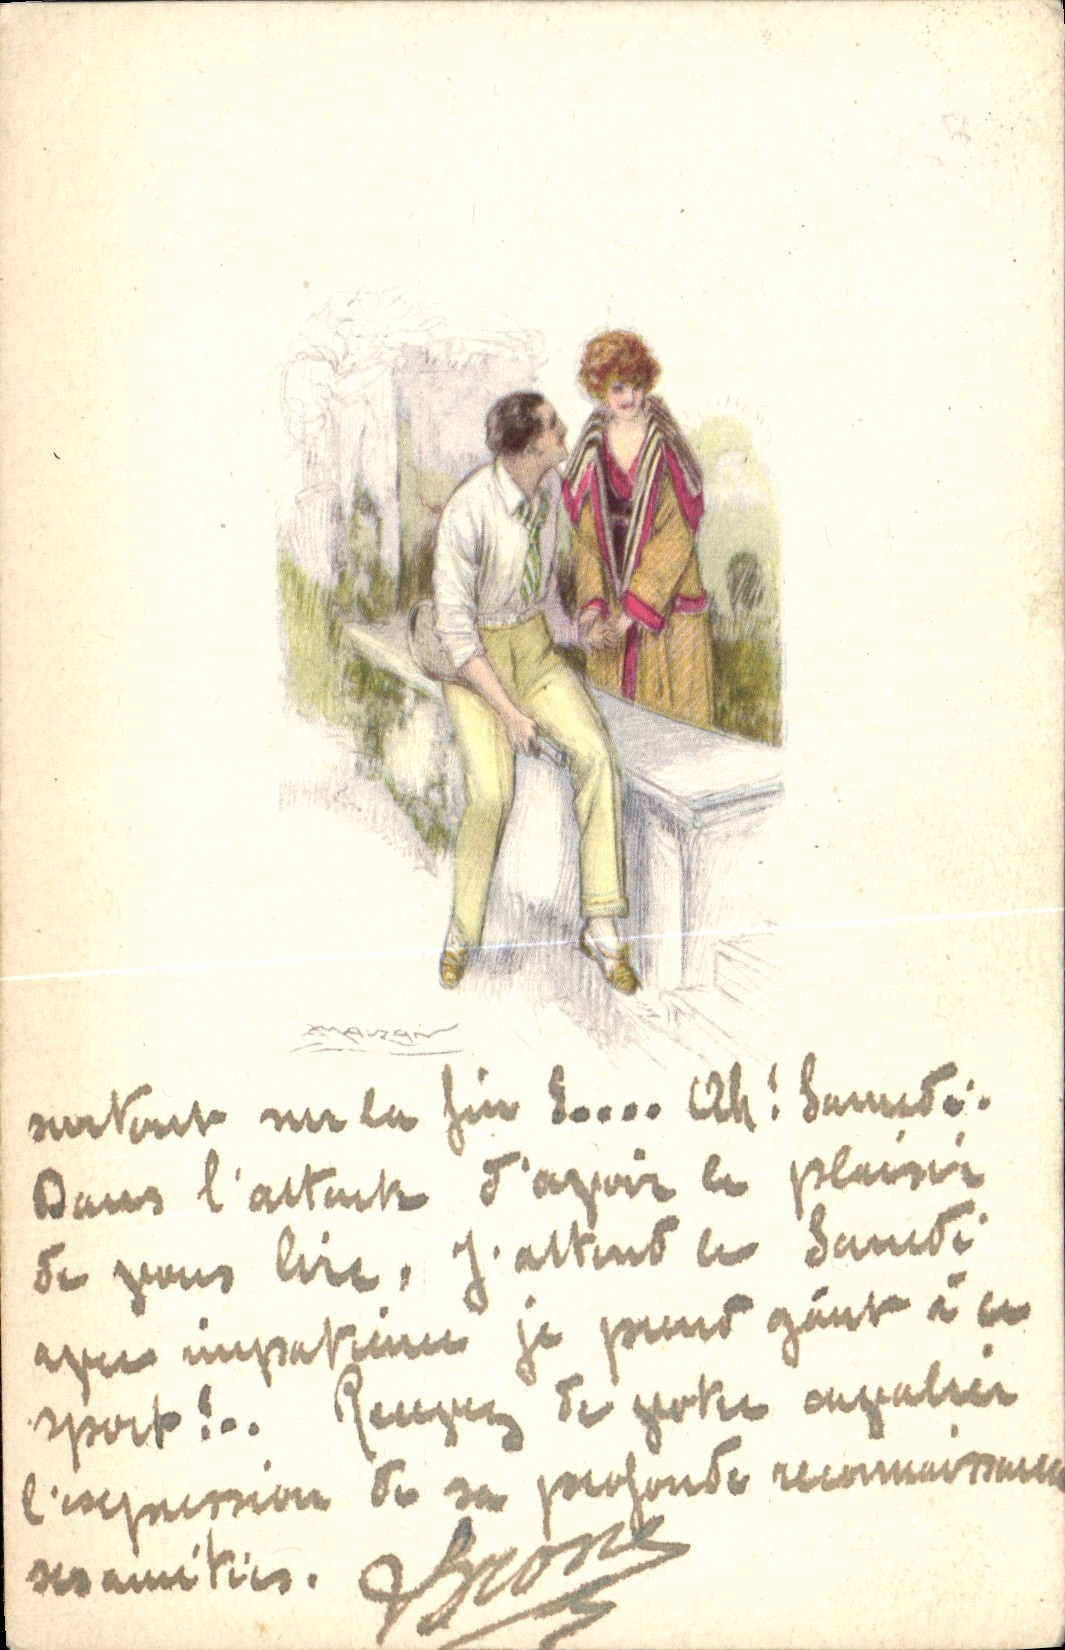 Mauzan
surtout sur la fin S.... Ah! Samedi.
Dans l'attente d'avoir le plaisir
de vous lire, J'attend le Samedi
avec impatience je prend goût à ce
sport!.. Recevez de votre cavalier
l'expression de sa profonde reconnaissance
ses amitiés.